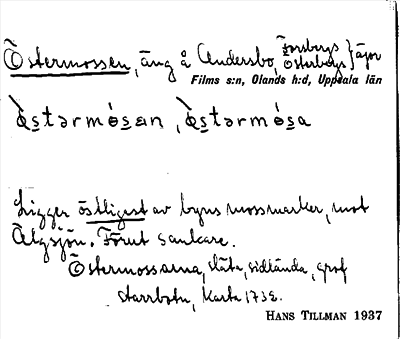 Östermossen, äng å Andersbo, Forsbergs Österbergs } ägor
Films s:n, Olands h:d, Uppsala län
östərmósan, östərmósa
Ligger östligest av byns mossmarker, mot
Älgsjön. Förut sankare.
Östermossarna, släta, sidlända, grof
starrbotn, Karta 1738.
HANS TILLMAN 1937